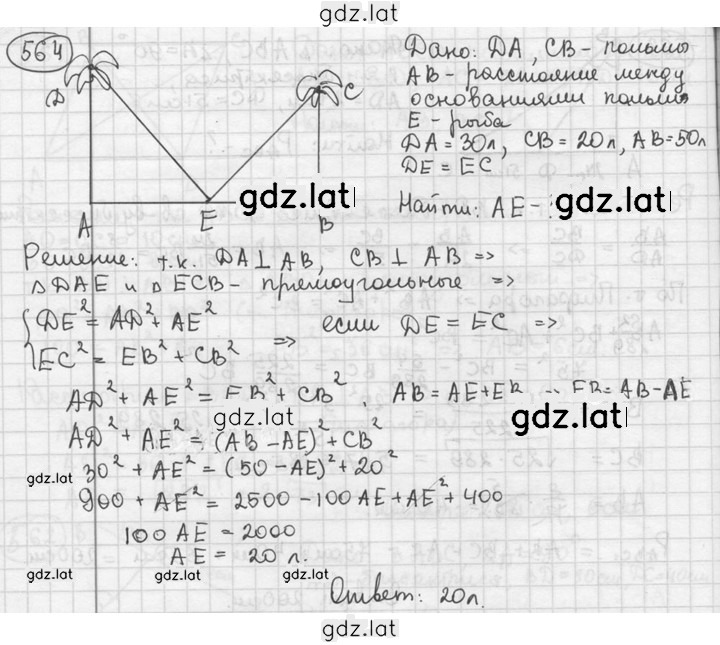 gdz.lat
564
Дано: DA, CB - пальмы
AB - расстояние между
основаниями пальм
E - рыба
DA = 30л, CB = 20л, AB = 50л
DE = EC
Найти: AE -
D
C
A
E
B
gdz.lat
gdz.lat
Решение: т.к. DA ⊥ AB, CB ⊥ AB =>
△DAE и △ECB - прямоугольные =>
DE² = AD² + AE²
EC² = EB² + CB²
=> если DE = EC =>
AD² + AE² = EB² + CB², AB = AE + EB EB = AB - AE
gdz.lat
gdz.lat
AD² + AE² = (AB - AE)² + CB²
30² + AE² = (50 - AE)² + 20²
gdz.lat
900 + AE² = 2500 - 100AE + AE² + 400
100 AE = 2000
AE = 20 л.
gdz.lat
gdz.lat
gdz.lat
Ответ: 20л.
gdz.lat